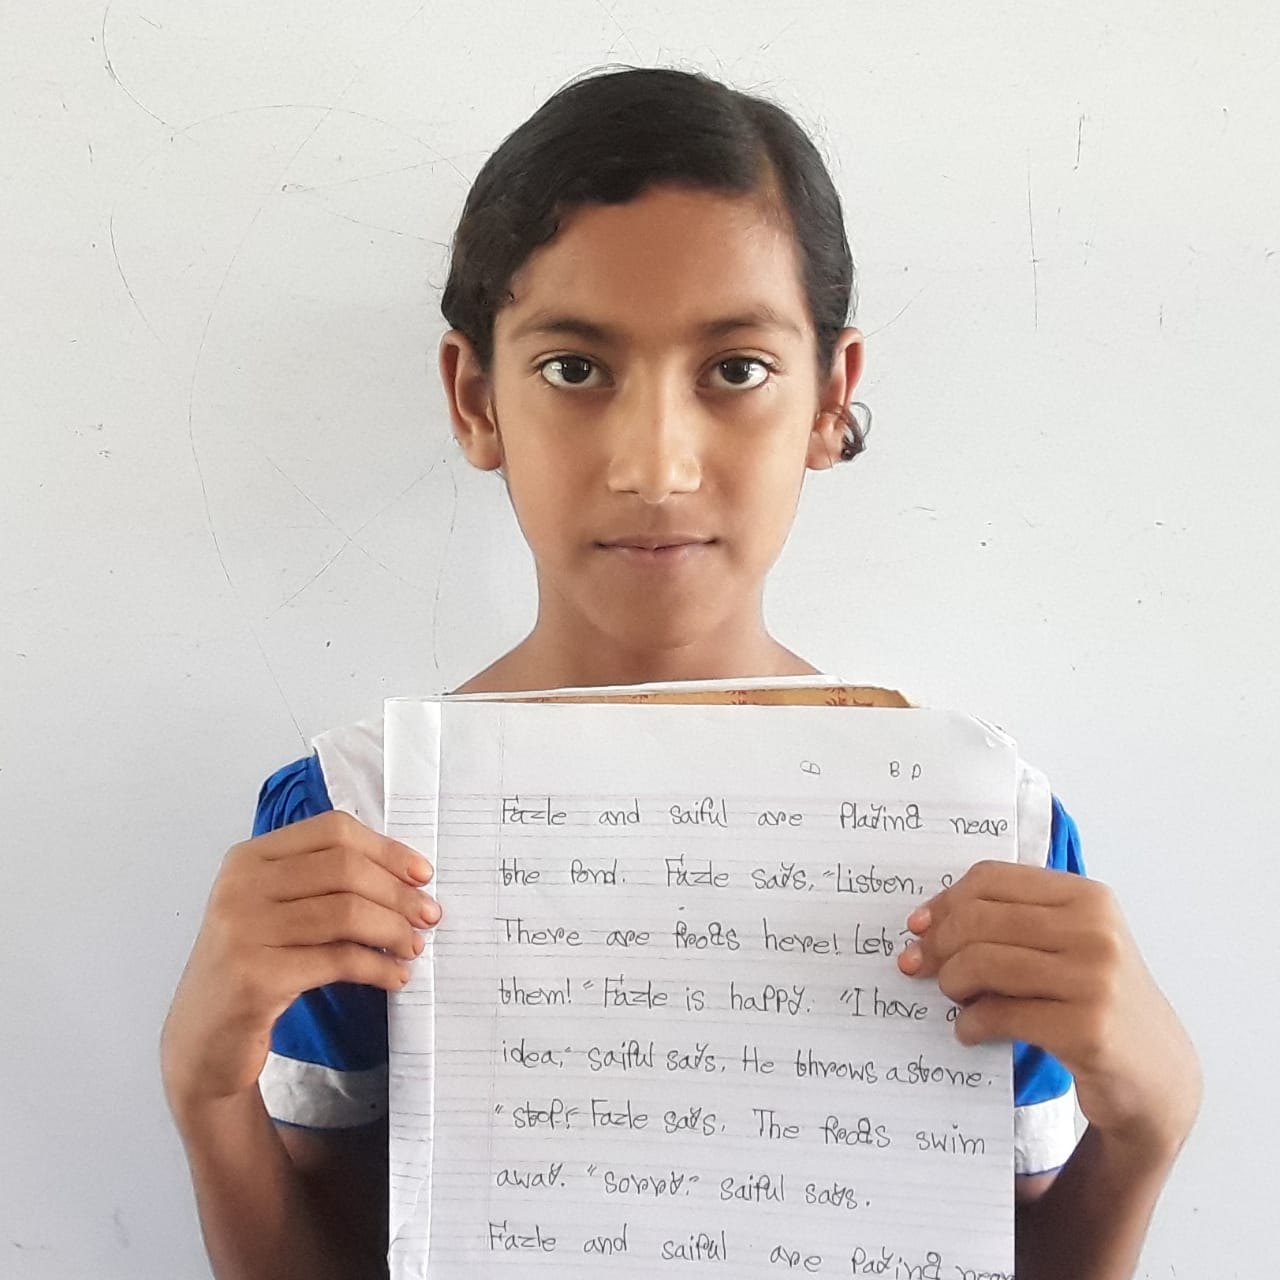 B B D
Fazle and saiful are PlaYing near
the Pond. Fazle saYs, "Listen,
There are frogs here! Let
them!" Fazle is haPPY. "I have
idea," saiful saYs. He throws a stone.
"stoP," Fazle saYs. The frogs swim
awaY. "SorrY." saiful saYs.
Fazle and saiful are PaYing near